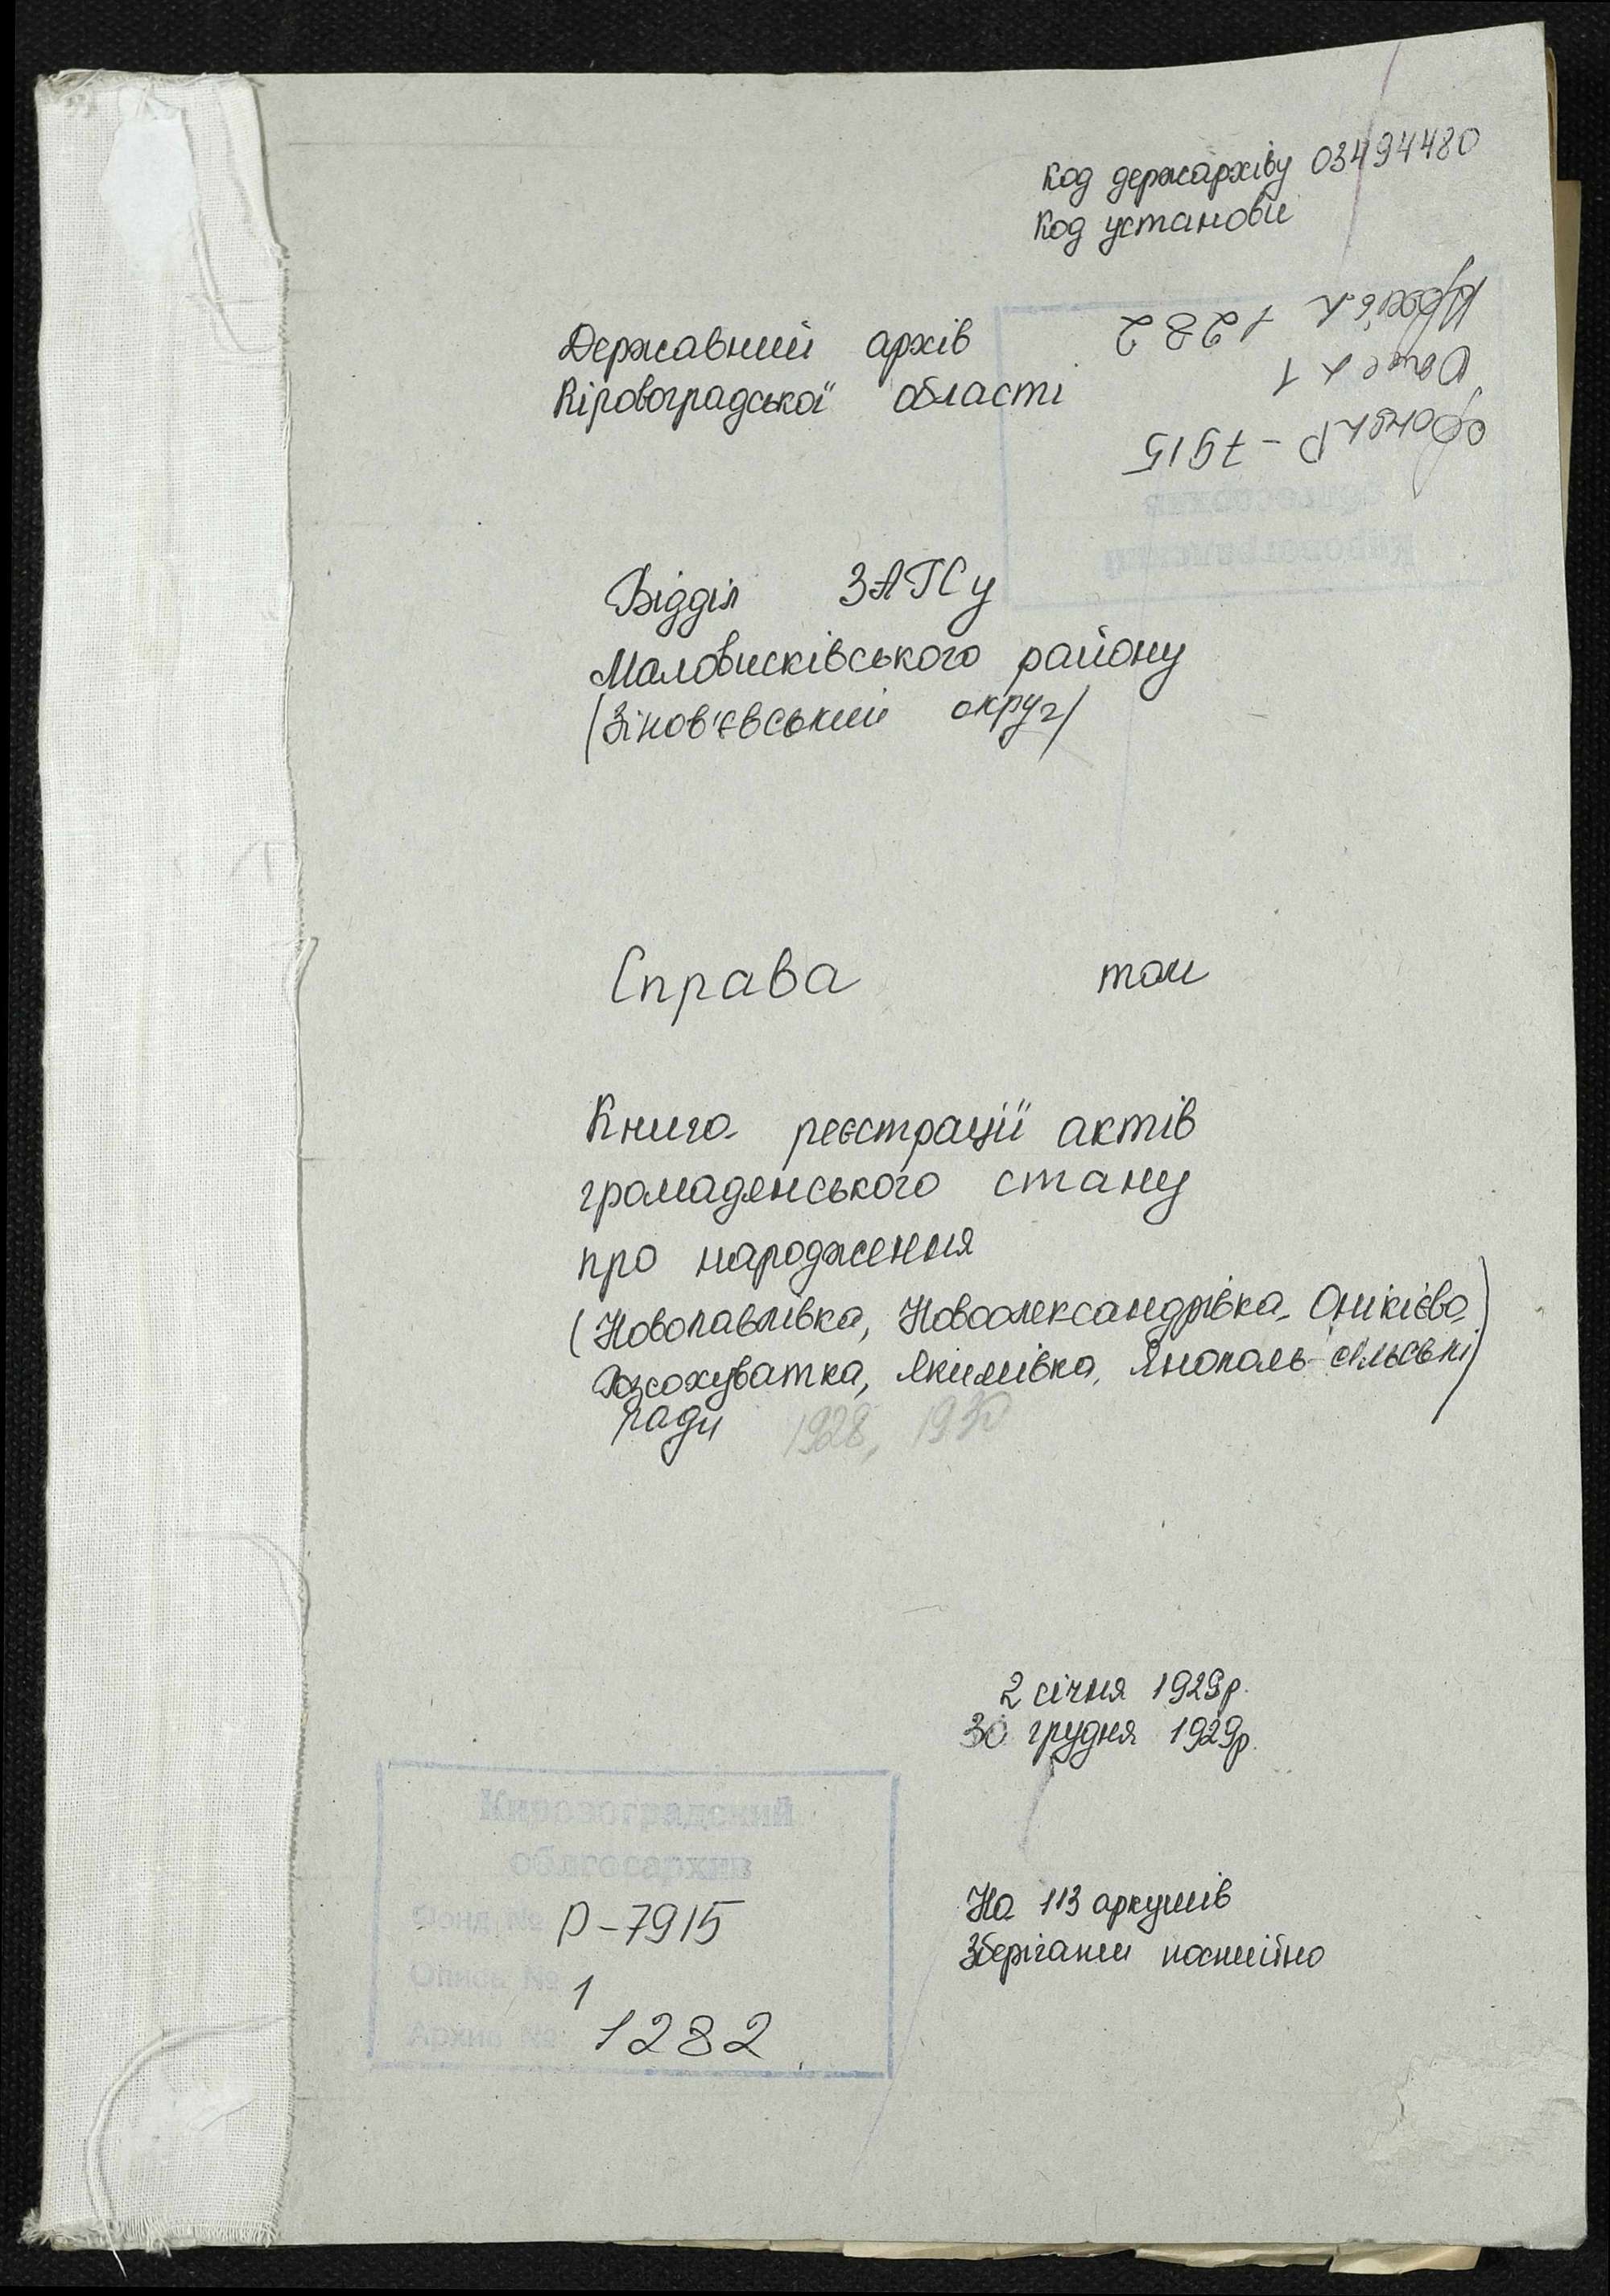 Код держархіву 03494480
Код установи
Державний архів
Кіровоградської області
Архів. 1282
Опис 1
Фонд Р-7915
Відділ ЗАГСу
Маловисківського району
(Зінов'євський округ)
Справа том
Книга реєстрації актів
громадянського стану
про народження
(Новопавлівка, Новоолександрівка, Онікієво,
Розсохуватка, Якимівка, Янополь сільські)
ради 1928, 1930
2 січня 1929р.
30 грудня 1929р.
Кировоградский
облгосархив
Фонд № Р-7915
Опись № 1
Архив № 1282
На 113 аркушів
Зберігати постійно